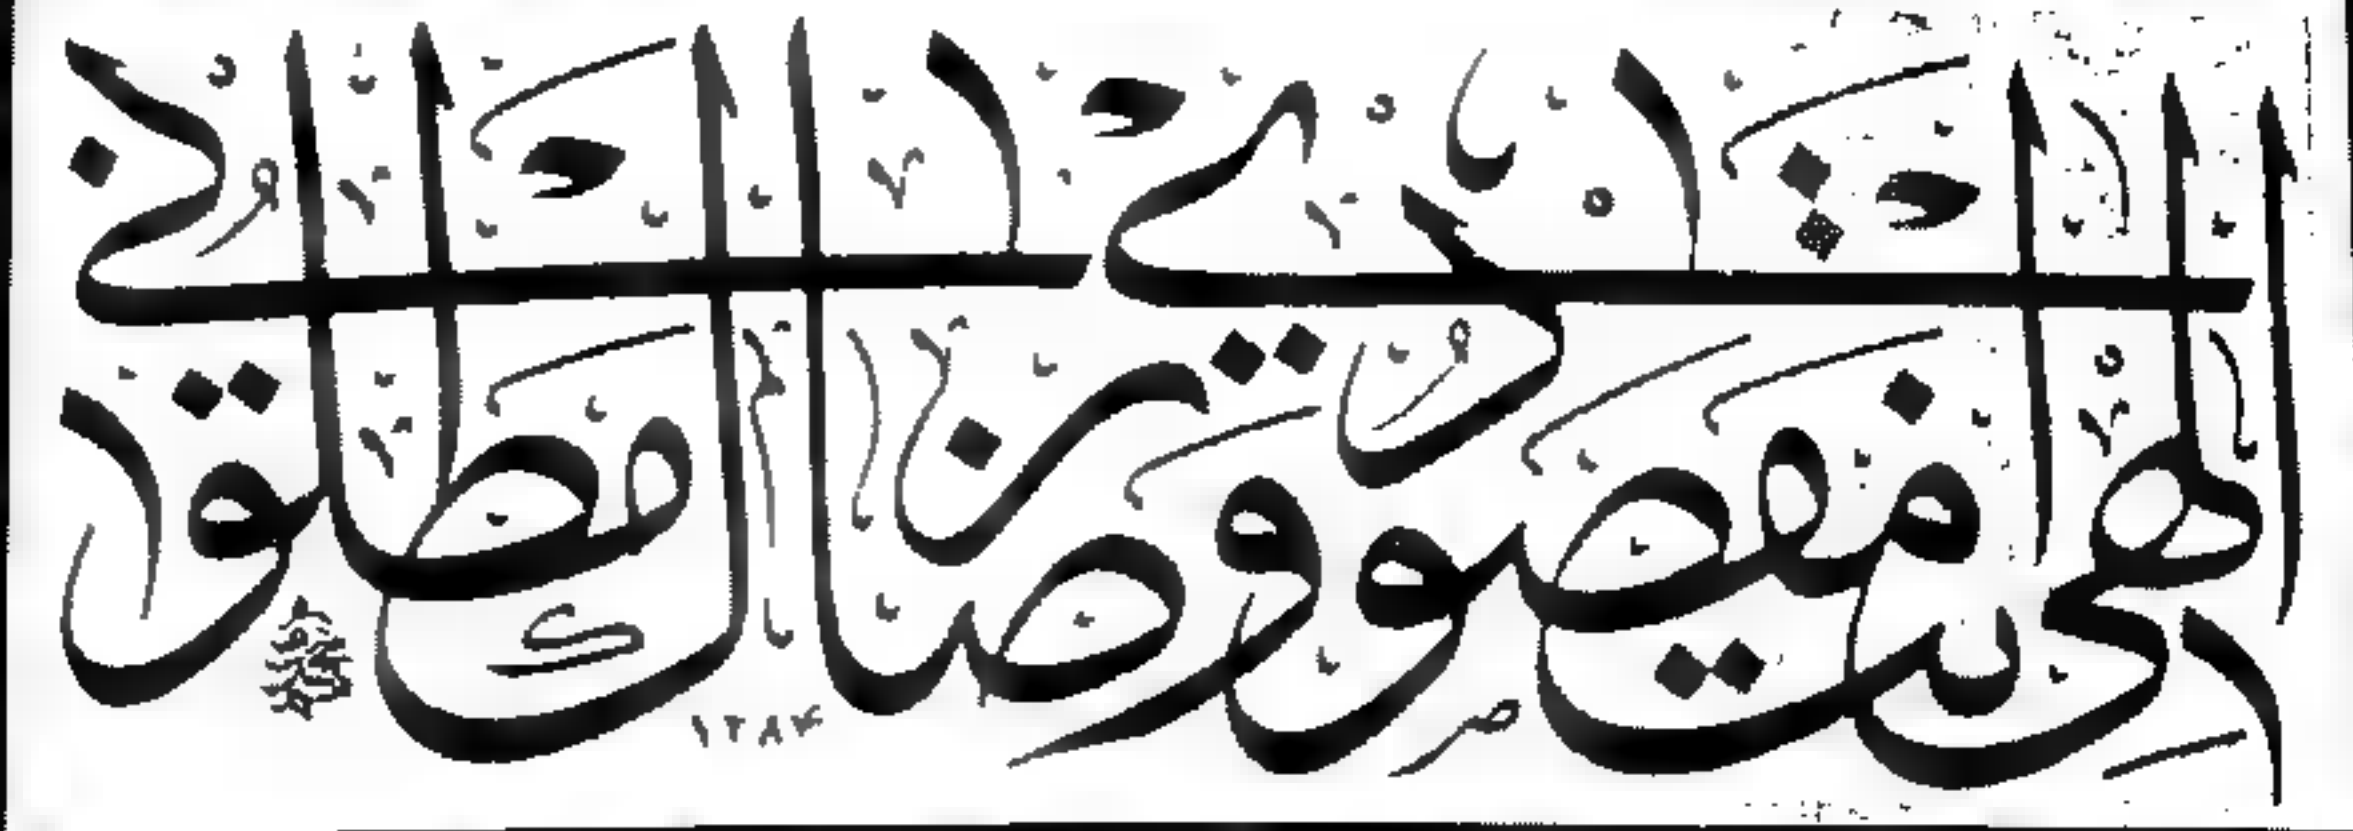 الهي انت مقصودي ورضاك مطلوبي
١٣٨٤